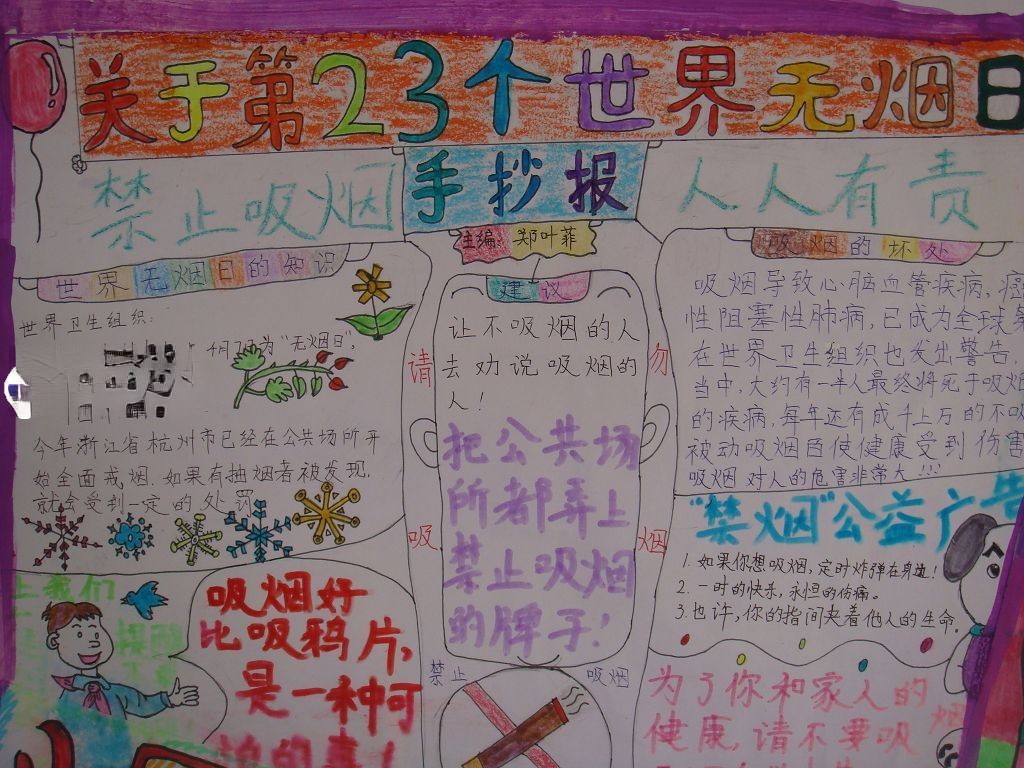 关于第23个世界无烟日
手抄报
禁止吸烟
人人有责
主编:郑叶菲
世界无烟日的知识
世界卫生组织:
4月7日为“无烟日”,
今年浙江省杭州市已经在公共场所开
始全面戒烟.如果有抽烟者被发现,
就会受到一定的处罚
上我们
吸烟好
比吸鸦片,
是一种可
怕的毒!
建议
让不吸烟的人
去劝说吸烟的
人!
把公共场
所都弄上
禁止吸烟
的牌子!
请
吸
勿
烟
禁止
吸烟
吸烟的坏处
吸烟导致心脑血管疾病、癌
性阻塞性肺病,已成为全球
在世界卫生组织也发出警告,
当中,大约有一半人最终将死于吸烟
的疾病,每年还有成千上万的不吸
被动吸烟而使健康受到伤害
吸烟对人的危害非常大!!!
“禁烟”公益广告
1.如果你想吸烟,定时炸弹在身边!
2.一时的快乐,永恒的伤痛。
3.也许,你的指间夹着他人的生命。
为了你和家人的
健康,请不要吸
烟